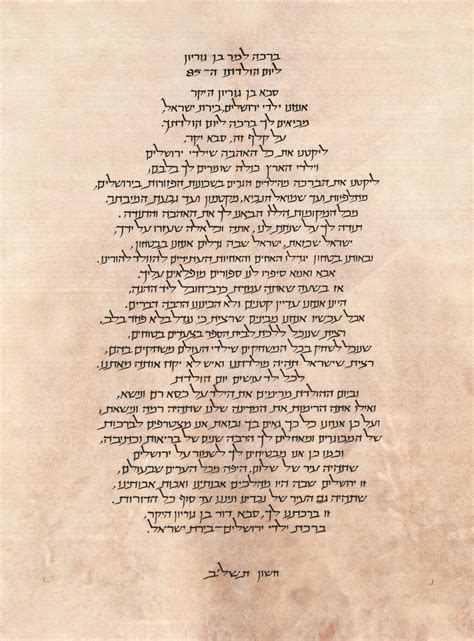 ברכה למר בן גוריון
ליום הולדתו ה-85
סבא בן גוריון היקר,
אנחנו ילדי ירושלים, בירת ישראל,
מביאים לך ברכה ליום הולדתך.
על קלף זה, סבא יקר,
ליקטנו את כל האהבה שילדי ירושלים
וילדי הארץ כולה שומרים לך בלבם.
ליקטנו את הברכה מהילדים הגרים בשכונות הפזורות בירושלים,
מתלפיות ועד שמואל הנביא, מקטמון ועד גבעת המבתר,
מכל המקומות הללו הבאנו לך את האהבה והתודה.
תודה לך על שנתת לנו, אתה וכל אלה שעזרו על ידך,
ישראל שכזאת, ישראל שבה גדלים אנחנו בבטחון,
ובאותו בטחון יגדלו האחים והאחיות העתידים להוולד להורינו.
אבא ואמא סיפרו לנו סיפורים מופלאים עליך.
אז בשעה שאתה עמדת כרב-חובל ליד ההגה,
היינו אנחנו עדיין קטנים ולא הבינונו הרבה דברים.
אבל עכשיו אנחנו מבינים שרצית כי נגדל בלא פחד בלב,
רצית שנוכל ללכת לבית הספר בצעדים בטוחים,
שנוכל לשחק בכל המשחקים שילדי העולם משחקים בהם,
רצית שישראל תהיה מולדתנו ואיש לא יקח אותה מאתנו.
לכל ילד עושים יום הולדת
וביום ההולדת מרימים את הילד על כסא רם ונישא,
ואילו אתה הרימות את המדינה שלנו שתהיה רמה ונישאת,
ועל כן אנחנו כל כך גאים בך וזאת אנו מצטרפים לברכות
של המבוגרים ומאחלים לך הרבה שנים של בריאות וכתיבה,
וכמו כן אנו מבטיחים לך לשמור על ירושלים
שתהיה עיר של שלום, היפה מכל הערים שבעולם,
זו ירושלים שבה היו מהלכים אבותינו ואבות אבותינו,
שתהיה גם העיר של נכדינו ונינינו עד סוף כל הדורות.
זו ברכתנו לך, סבא דוד בן גוריון היקר,
ברכת ילדי ירושלים-בירת ישראל.
חשון תשל"ב